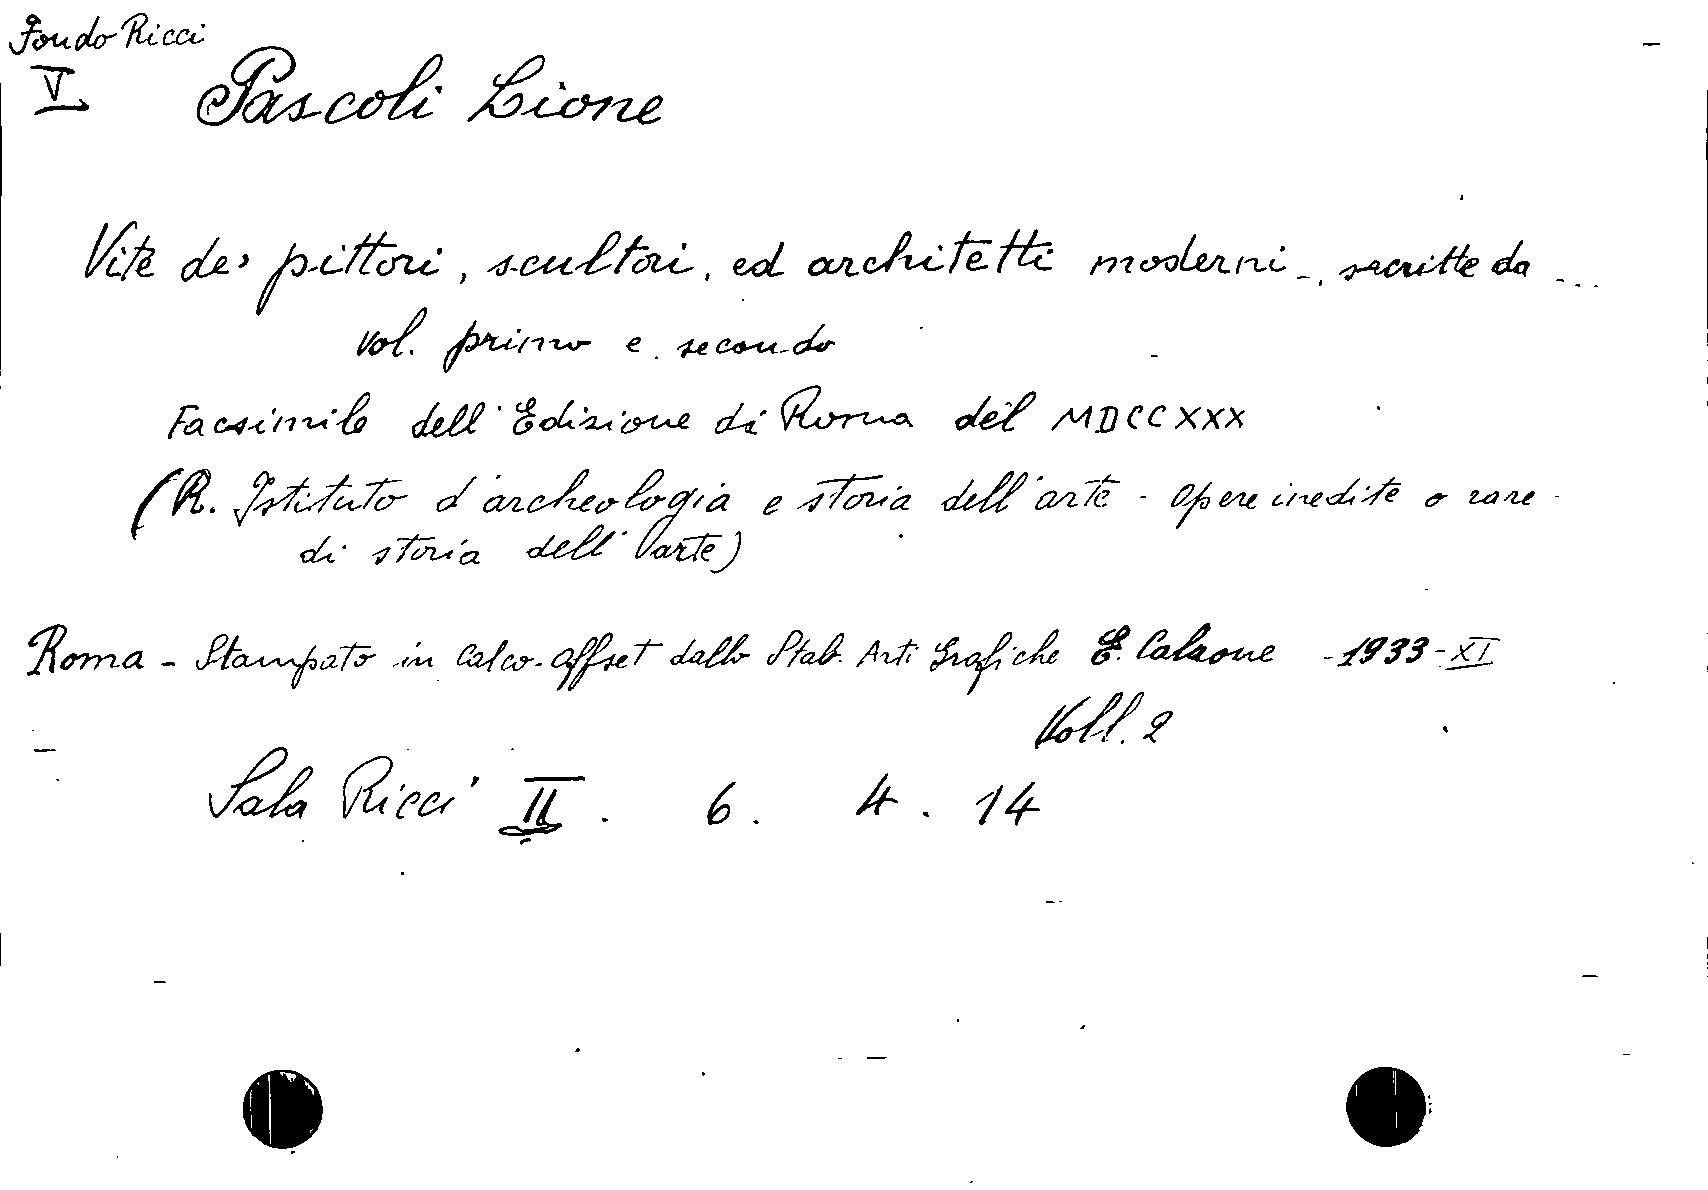 Fondo Ricci
V
Pascoli Lione
Vite de' pittori, scultori, ed architetti moderni -, scritte da ...
vol. primo e secondo
Facsimile dell'Edizione di Roma del MDCCXXX
(R. Istituto d'archeologia e storia dell'arte - Opere inedite o rare
di storia dell'arte)
Roma - Stampato in Calco-Offset dallo Stab. Arti Grafiche E. Calzone - 1933 - XI
Voll. 2
Sala Ricci II. 6. 4. 14